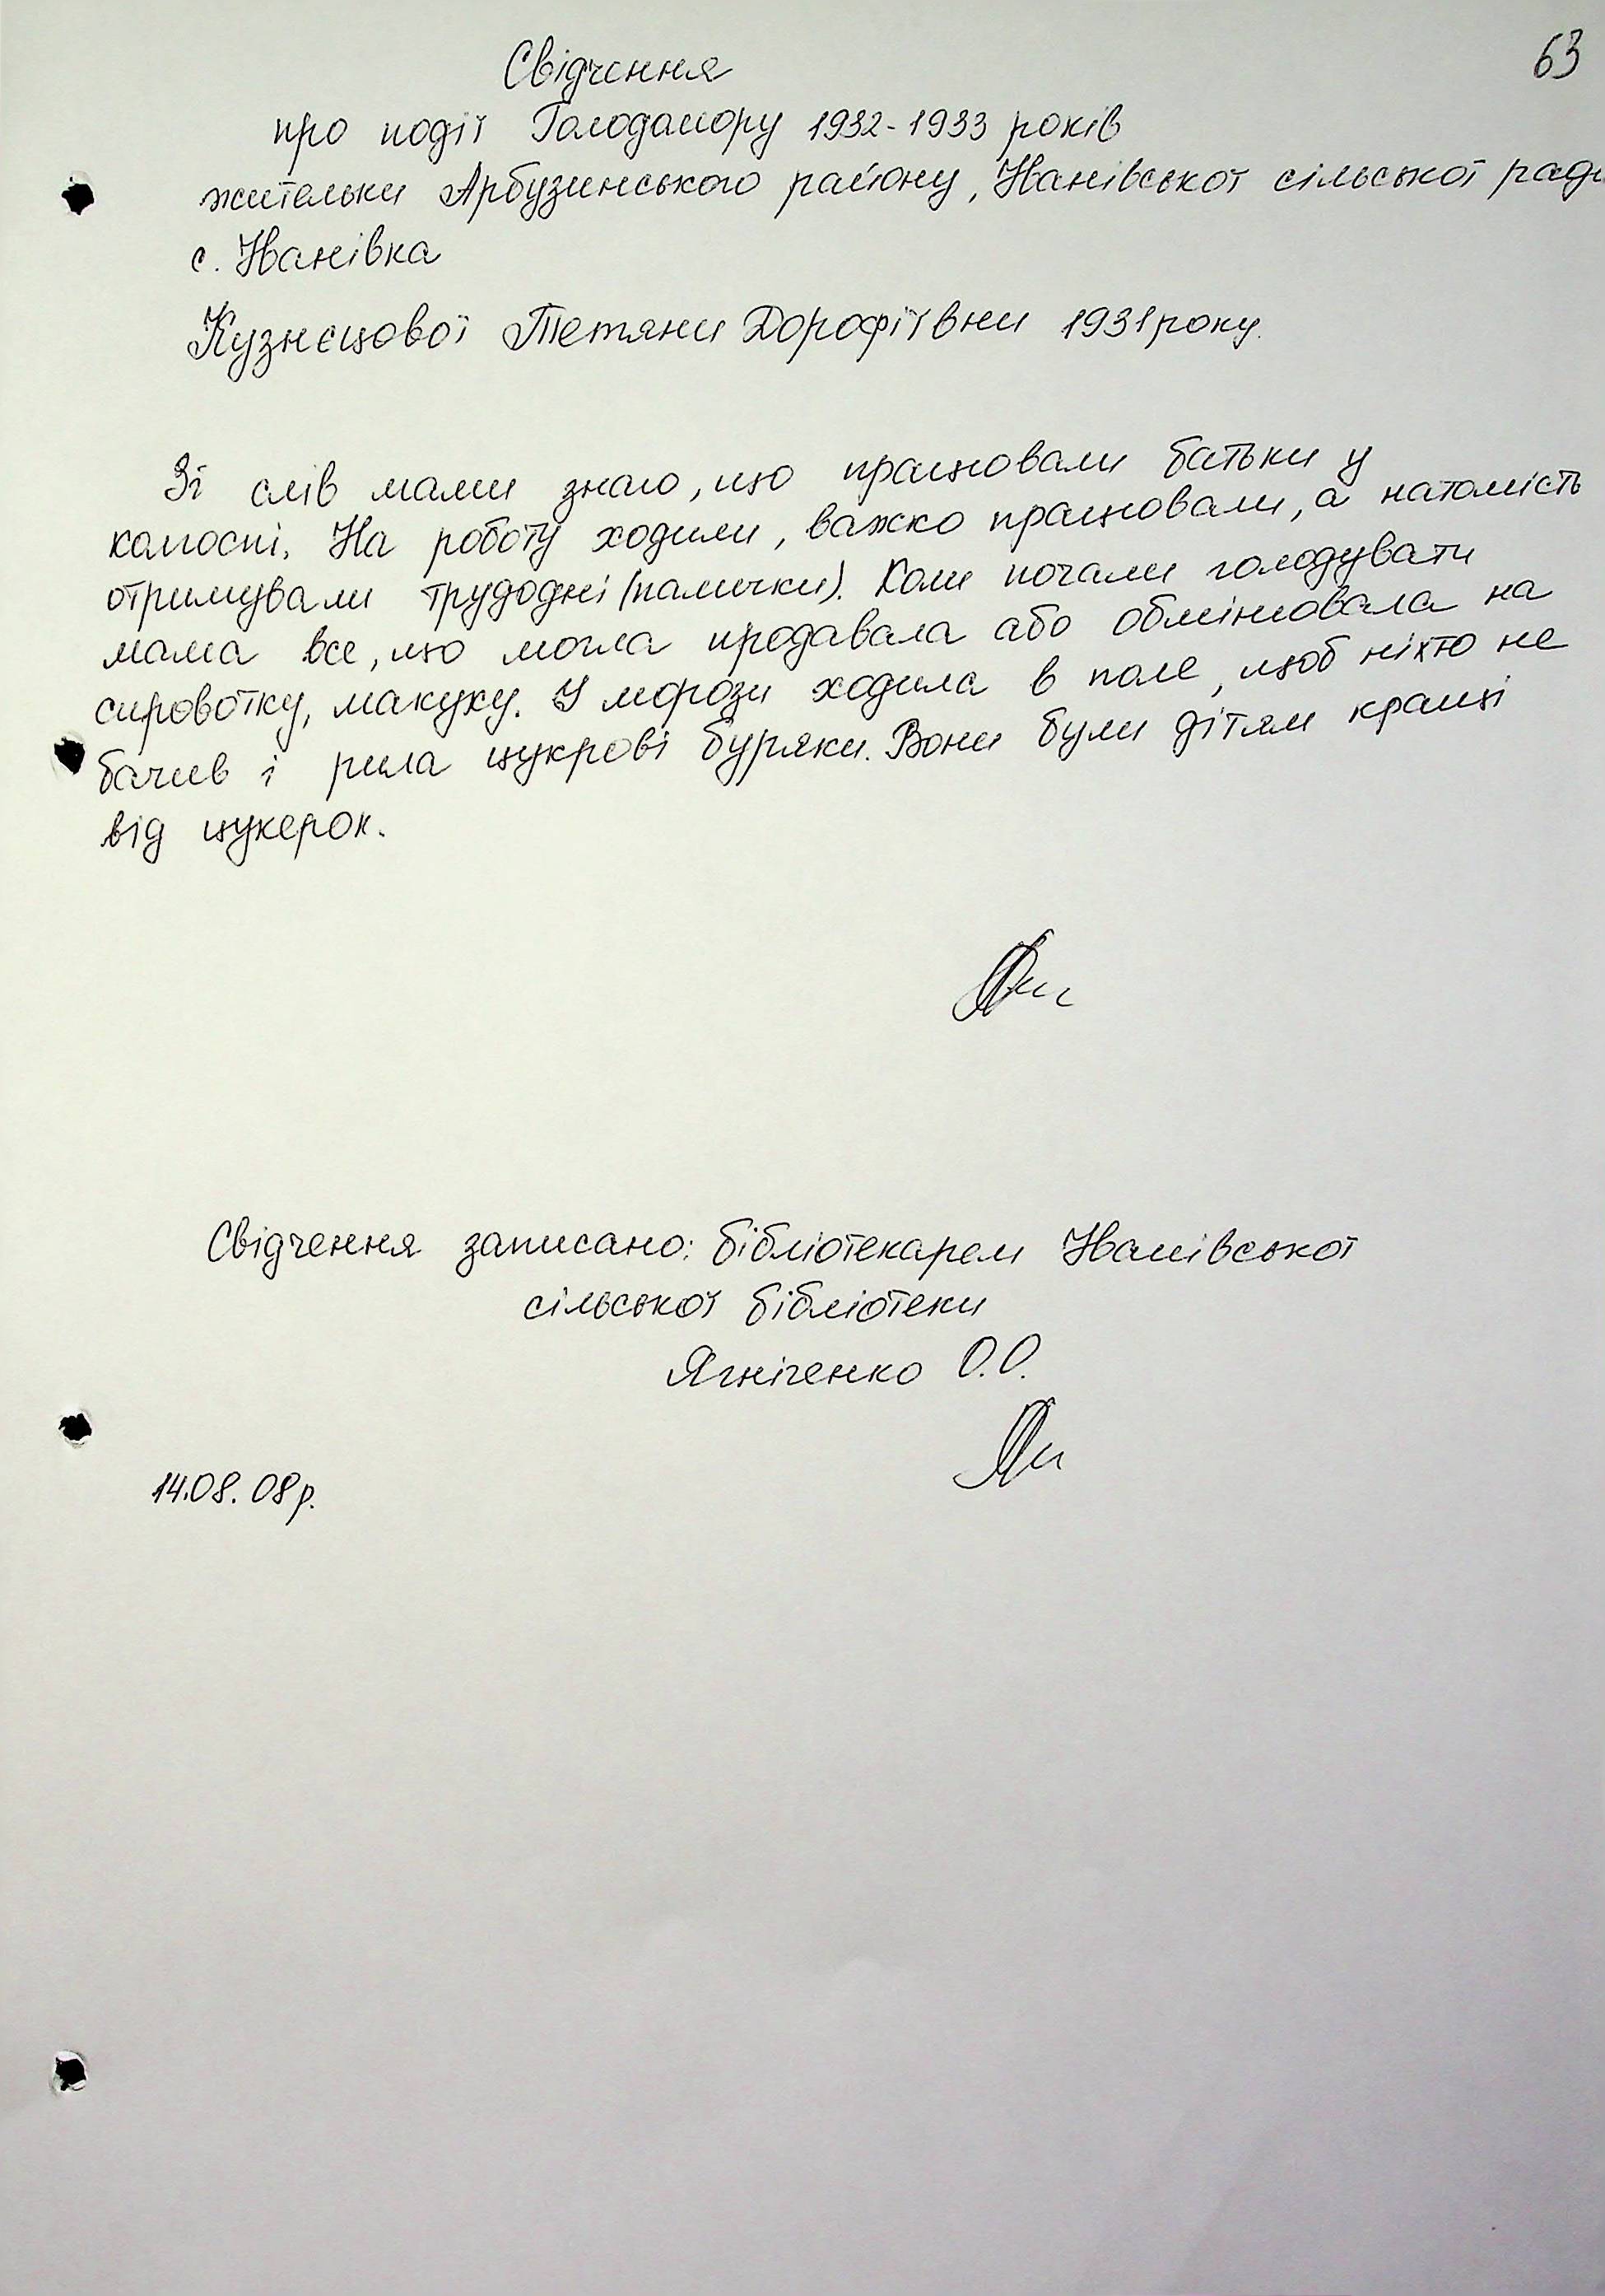 63
Свідчення
про події Голодомору 1932-1933 років
жительки Арбузинського району, Іванівської сільської ради
с. Іванівка
Кузнєцової Тетяни Дорофіївни 1931 року.
Зі слів мами знаю, що працювали батьки у
колгоспі. На роботу ходили, важко працювали, а натомість
отримували трудодні (палички). Коли почали голодувати
мама все, що могла продавала або обмінювала на
сироватку, макуху. У морози ходила в поле, щоб ніхто не
бачив і рила цукрові буряки. Вони були дітям кращі
від цукерок.
Свідчення записано: бібліотекарем Іванівської
сільської бібліотеки
Ягніченко О.О.
14.08.08р.